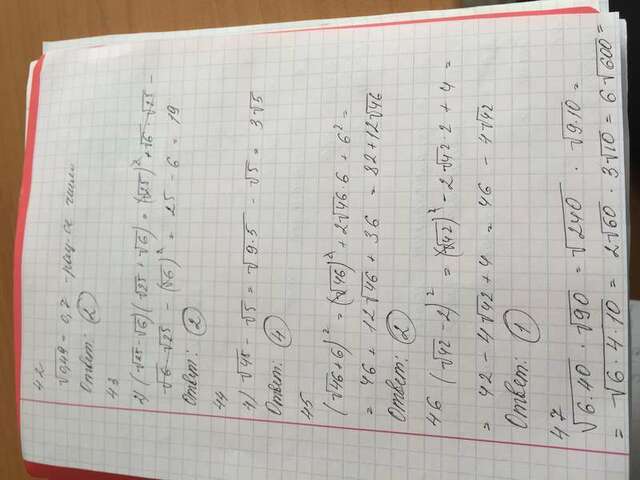 42
√0,49 = 0,7 - рац-ое число
Ответ: 2
43
2) (√25 - √6)(√25 + √6) = (√25)² + √6 · √25 -
√6 · √25 - (√6)² = 25 - 6 = 19
Ответ: 2
44
4) √45 - √5 = √9·5 - √5 = 3√5
Ответ: 4
45
(√46 + 6)² = (√46)² + 2√46 · 6 + 6² =
= 46 + 12√46 + 36 = 82 + 12√46
Ответ: 2
46 (√42 - 2)² = (√42)² - 2√42 · 2 + 4 =
= 42 - 4√42 + 4 = 46 - 4√42
Ответ: 1
47
√6.40 · √90 = √240 · √9.10 =
= √6·4·10 = 2√60 · 3√10 = 6√600 =